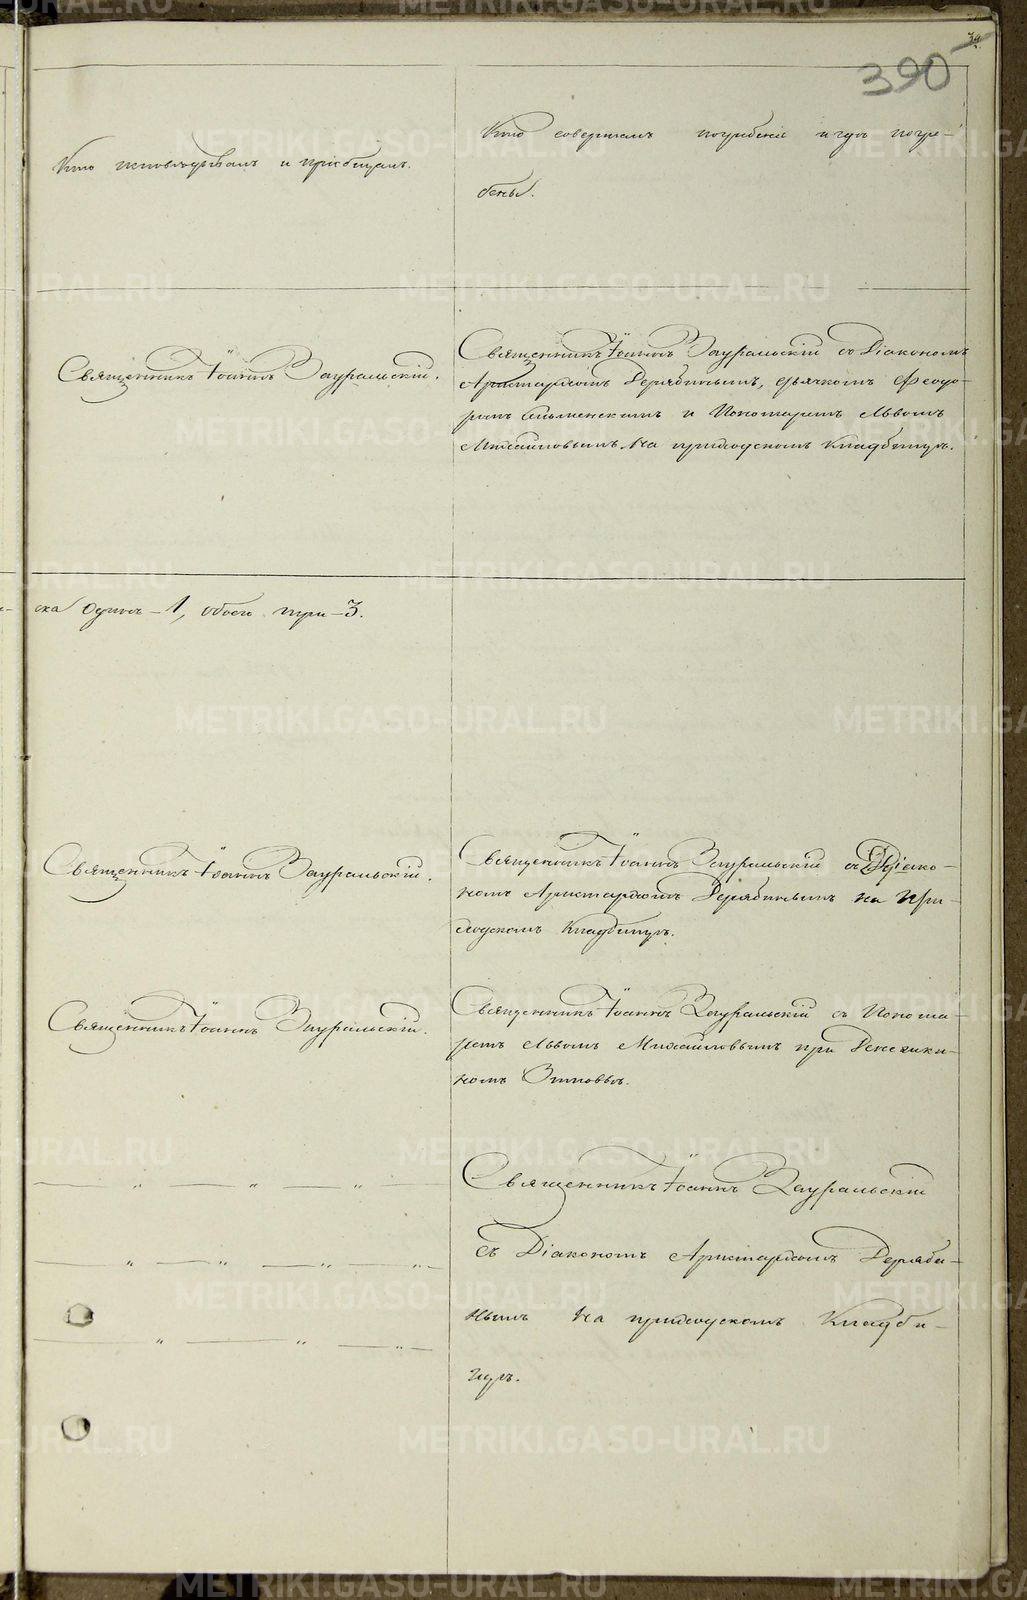 390
Кто исповѣдывалъ и пріобщалъ.
Кто совершалъ погребеніе и гдѣ погре-
бены.
Священникъ Іоаннъ Зауральскій.
Священникъ Іоаннъ Зауральскій съ Діакономъ
Аристархомъ Дерябинымъ, дьячкомъ Феодо-
ромъ и Пономаремъ Львомъ
Михайловымъ на приходскомъ кладбищѣ.
ска одинъ - 1, обоего три - 3.
Священникъ Іоаннъ Зауральскій.
Священникъ Іоаннъ Зауральскій съ Діако-
номъ Аристархомъ Дерябинымъ на при-
ходскомъ кладбищѣ.
Священникъ Іоаннъ Зауральскій.
Священникъ Іоаннъ Зауральскій съ Понома-
ремъ Львомъ Михайловымъ при
Священникъ Іоаннъ Зауральскій
съ Діакономъ Аристархомъ Деряби-
нымъ на приходскомъ кладби-
щѣ.
METRIKI.GASO-URAL.RU